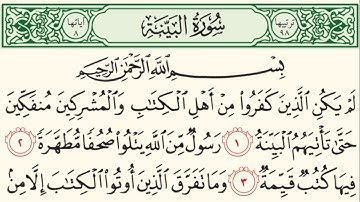 ترتيبها ٩٨ سُورَةُ البَيِّنَةِ آياتها ٨
بِسْمِ اللَّهِ الرَّحْمَٰنِ الرَّحِيمِ
لَمْ يَكُنِ الَّذِينَ كَفَرُوا مِنْ أَهْلِ الْكِتَابِ وَالْمُشْرِكِينَ مُنفَكِّينَ
حَتَّىٰ تَأْتِيَهُمُ الْبَيِّنَةُ ١ رَسُولٌ مِّنَ اللَّهِ يَتْلُوا صُحُفًا مُّطَهَّرَةً ٢
فِيهَا كُتُبٌ قَيِّمَةٌ ٣ وَمَا تَفَرَّقَ الَّذِينَ أُوتُوا الْكِتَابَ إِلَّا مِنۢ